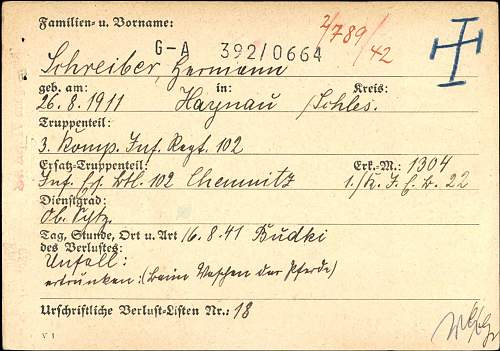 Familien- u. Vorname:
2/789/42
G-A 392/0664
Schreiber, Hermann
geb. am: in: Kreis:
26.8.1911 Haynau /Schles.
Truppenteil:
3. Komp. Inf. Regt. 102
Ersatz-Truppenteil: Erk.-M.: 1304
Inf. Ers. Btl. 102 Chemnitz 1./K. J. E. B. 22
Dienstgrad:
Ob. Schtz.
Tag, Stunde, Ort u. Art 16.8.41 Budki
des Verlustes:
Unfall:
ertrunken: (beim Waschen der Pferde)
Urschriftliche Verlust-Listen Nr.: 18
V 1